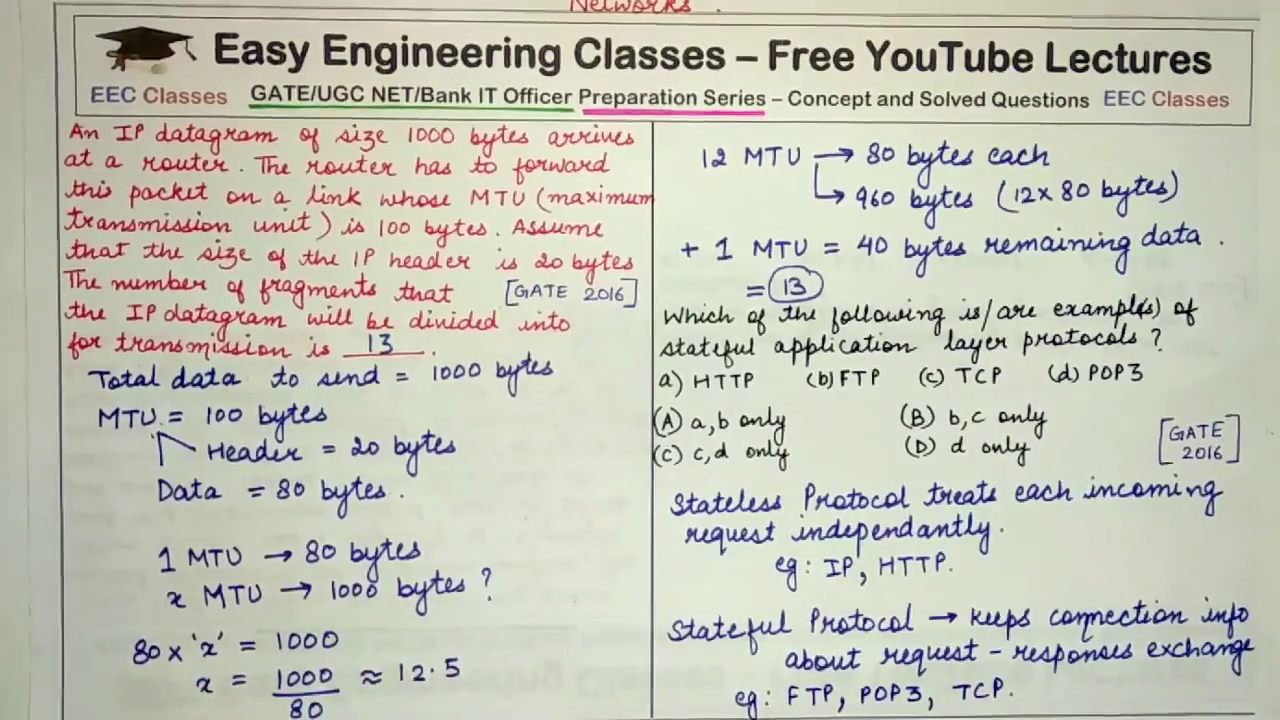 Networks.
Easy Engineering Classes – Free YouTube Lectures
EEC Classes GATE/UGC NET/Bank IT Officer Preparation Series – Concept and Solved Questions EEC Classes
An IP datagram of size 1000 bytes arrives
at a router. The router has to forward
this packet on a link whose MTU (maximum
transmission unit) is 100 bytes. Assume
that the size of the IP header is 20 bytes
The number of fragments that [GATE 2016]
the IP datagram will be divided into
for transmission is 13.
Total data to send = 1000 bytes
MTU = 100 bytes
Header = 20 bytes
Data = 80 bytes.
1 MTU → 80 bytes
x MTU → 1000 bytes ?
80 × 'x' = 1000
x = 1000 ≈ 12.5
80
12 MTU → 80 bytes each
↳ 960 bytes (12 x 80 bytes)
+ 1 MTU = 40 bytes remaining data.
= 13
Which of the following is/are example(s) of
stateful application layer protocols ?
a) HTTP (b) FTP (c) TCP (d) POP3
(A) a, b only (B) b, c only
(C) c, d only (D) d only
[GATE
2016]
Stateless Protocol treats each incoming
request independantly.
eg: IP, HTTP.
Stateful Protocol → keeps connection info
about request-responses exchange
eg: FTP, POP3, TCP.